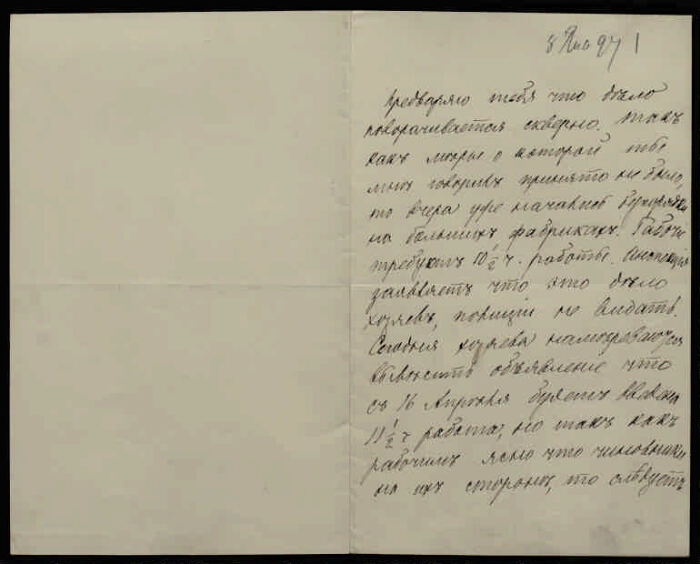 8 Янв 97 1
предваряю тебя что дѣло
поворачивается скверно. Такъ
какъ мѣры о которой ты
мнѣ говорилъ принято не было,
то вчера уже начались безпорядки
на большихъ фабрикахъ. Рабочіе
требуютъ 10 1/2 ч. работы. Инспекція
заявляетъ что это дѣло
хозяевъ, полиціи не видать.
Сегодня хозяева намѣреваются
вывѣсить объявленіе что
съ 16 Апрѣля будетъ введена
11 1/2 ч работа, но такъ какъ
рабочимъ ясно что чиновники
на ихъ сторонѣ, то слѣдуетъ